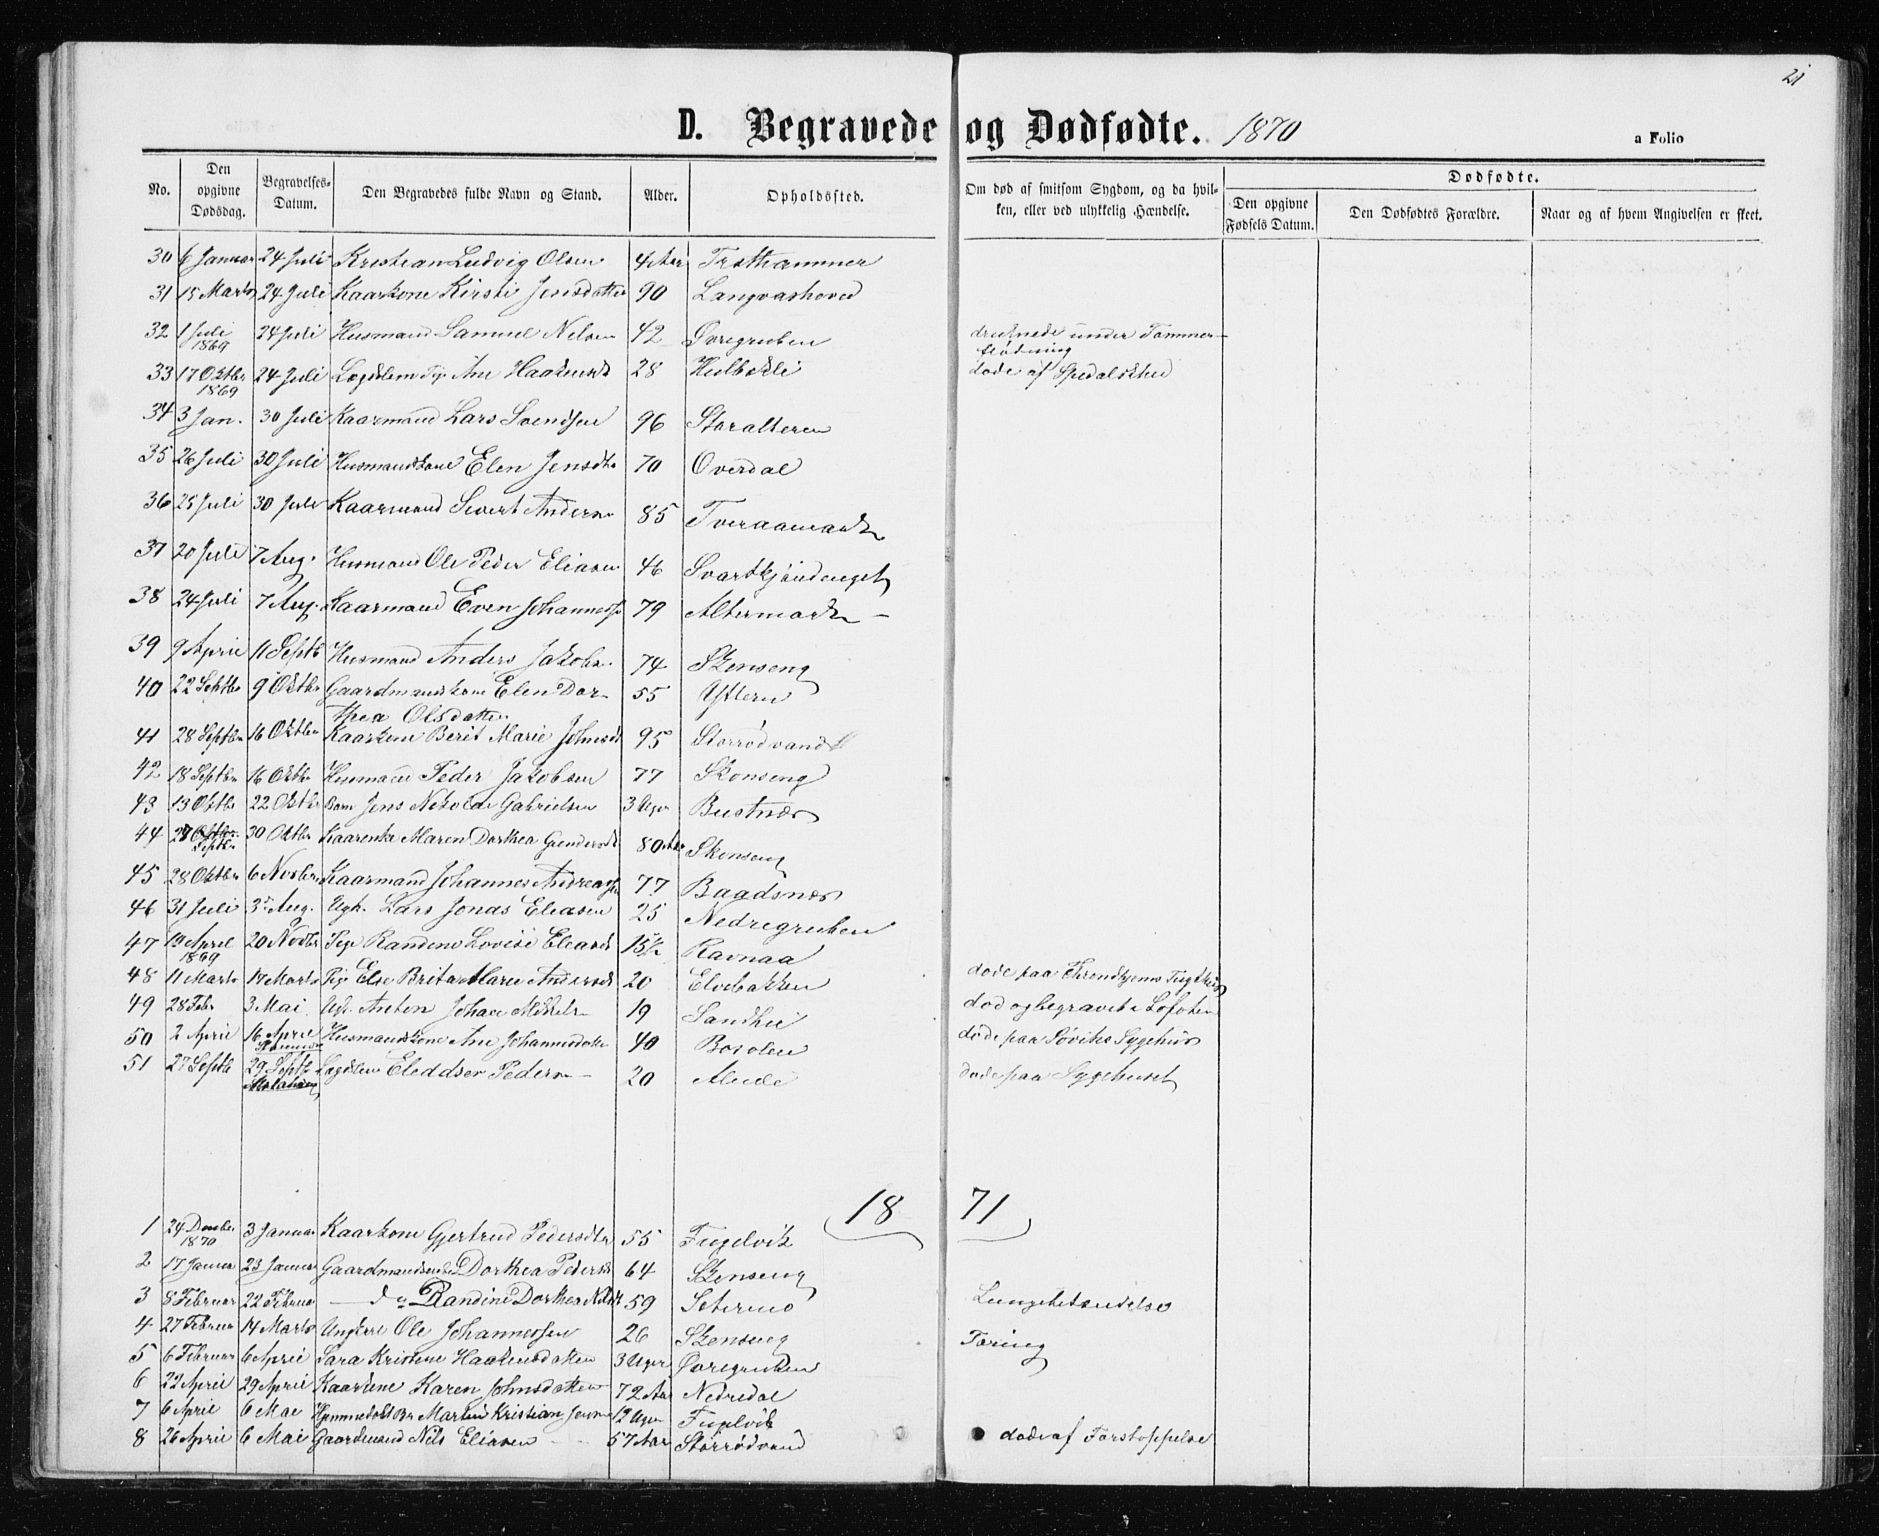 21
D. Begravede og Dødfødte. 1870
a Folio
No. Den opgivne Dødsdag. Begravelses-Datum. Den Begravedes fulde Navn og Stand. Alder. Opholdssted. Om død af smitsom Sygdom, og da hvilken, eller ved ulykkelig Hændelse. Dødfødte. Den opgivne Fødsels Datum. Den Dødfødtes Forældre. Naar og af hvem Angivelsen er skeet.
30 6 Januar 24 Juli Kristian Ludvig Olsen 4 Aar
31 15 Marts 24 Juli Kaarkone Kirsti Jensdatter 90 Langvashoved
32 1 Juli 1869 24 Juli Husmand Samuel Nilsen 42 Øvregruben druknede under Tømmer-
flødning
33 17 Oktbr 1869 24 Juli Lægdslem Pige Ane Haakensd 28 Hulbækli døde af Spedalskhed
34 3 Jan. 30 Juli Kaarmand Lars Svendsen 96 Storalteren
35 26 Juli 30 Juli Husmandskone Elen Jensdtr 70 Overdal
36 25 Juli 30 Juli Kaarmand Sivert Anders 85 Tveraamark
37 20 Juli 7 Aug. Husmand Ole Peder Eliasen 46 Svartkjøndenget
38 24 Juli 7 Aug. Kaarmand Even Johanness 79 Altermark
39 9 April 11 Septb Husmand Anders Jakobs. 74 Skonseng
40 22 Septbr 9 Oktbr Gaardmandskone Elen Dor- 55 Ytteren
thea Olsdatter
41 28 Septbr 16 Oktbr Kaarkone Berit Marie Johnsd 95 Storrødvand
42 18 Septbr 16 Oktbr Husmand Peder Jakobsen 77 Skonseng
43 13 Oktbr 22 Oktbr Barn Jens Nikolai Gabrielsen 3 Uger Bustnæs
44 27 Septbr 30 Oktbr Kaarenke Maren Dorthea Gundersd 80 Aar Skonseng
45 28 Oktbr 6 Novbr Kaarmand Johannes Andreass 77 Baadsnæs
46 31 Juli 3 Aug. Ugk. Lars Jonas Eliasen 25 Nedregruben
47 19 April 1869 20 Novbr Pige Randine Lovise Eliasd 15½ Ravnaa
48 11 Marts 17 Marts Pige Else Brita Marie Andersd 20 Elvebakken døde paa Throndhjems Tugthus
49 28 Febr 3 Mai Ugk. Anton Johan Mikkels 19 Sandhei død og begravet i Lofoten
50 2 April 16 April Husmandskone Ane Johannesdatter 40 døde paa Søviks Sygehus
51 27 Septb 29 Septb Lægdslem Peders 20 døde paa Sygehuset
1871
1 24 Decmbr 1870 3 Januar Kaarkone Gjertrud Pedersdtr 55 Fuglvik
2 17 Januar 23 Januar Gaardmandsenke Dorthea Pedersd 64 Skonseng
3 8 Februar 22 Februar — do Randine Dorthea Nilsd 59 Seternæs Lungebetændelse
4 27 Februar 14 Marts Ungkrl Ole Johannessen 26 Skonseng Tæring
5 6 Februar 6 April Sara Kristine Haakensdatter 3 Uger Øvregruben
6 22 April 29 April Kaarkone Karen Johnsdatter 72 Aar Nedredal
7 6 April 6 Mai Hjemmedøbt Br Martin Kristian Jens 12 Uger Fuglvik
8 26 April 6 Mai Gaardmand Nils Eliasen 57 Aar Storrødvand døde af Forstoppelse